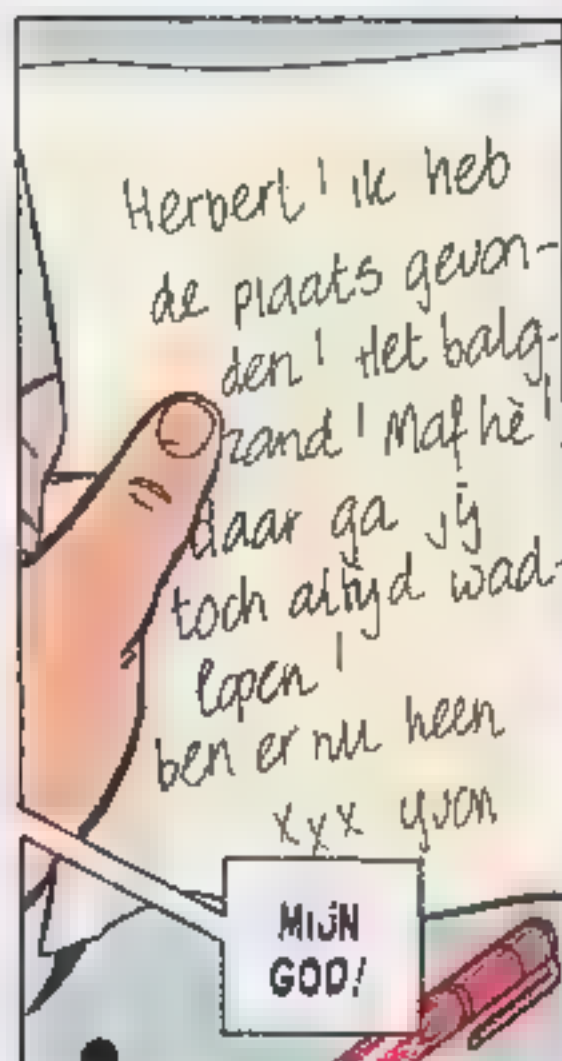 Herbert! ik heb
de plaats gevon-
den! Het balg-
zand! Maf hè!
daar ga jij
toch altijd wad-
lopen!
ben er nu heen
xxx yvon
MIJN
GOD!